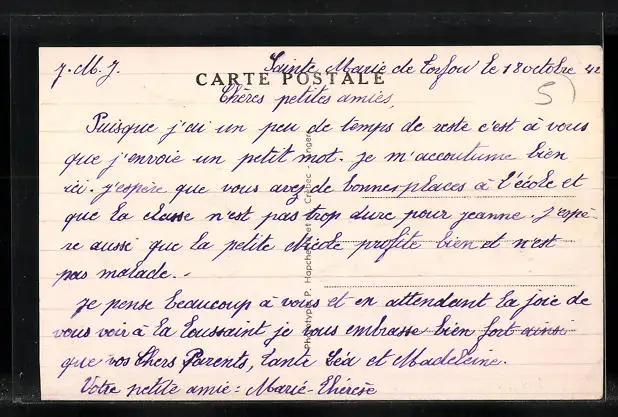 J. M. J. Sainte Marie de Torfou le 18 octobre 42
CARTE POSTALE
5)
Chères petites amies,
Puisque j'ai un peu de temps de reste c'est à vous
que j'envoie un petit mot. Je m'accoutume bien
ici. j'espère que vous avez de bonnes places à l'école et
que la classe n'est pas trop dure pour jeanne. J'espè-
re aussi que la petite Nicole profite bien et n'est
pas malade. -
Je pense beaucoup à vous et en attendant la joie de
vous voir à la Toussaint je vous embrasse bien fort ainsi
que vos Chers Parents, tante Léa et Madeleine.
Votre petite amie = Marie-Thérèse